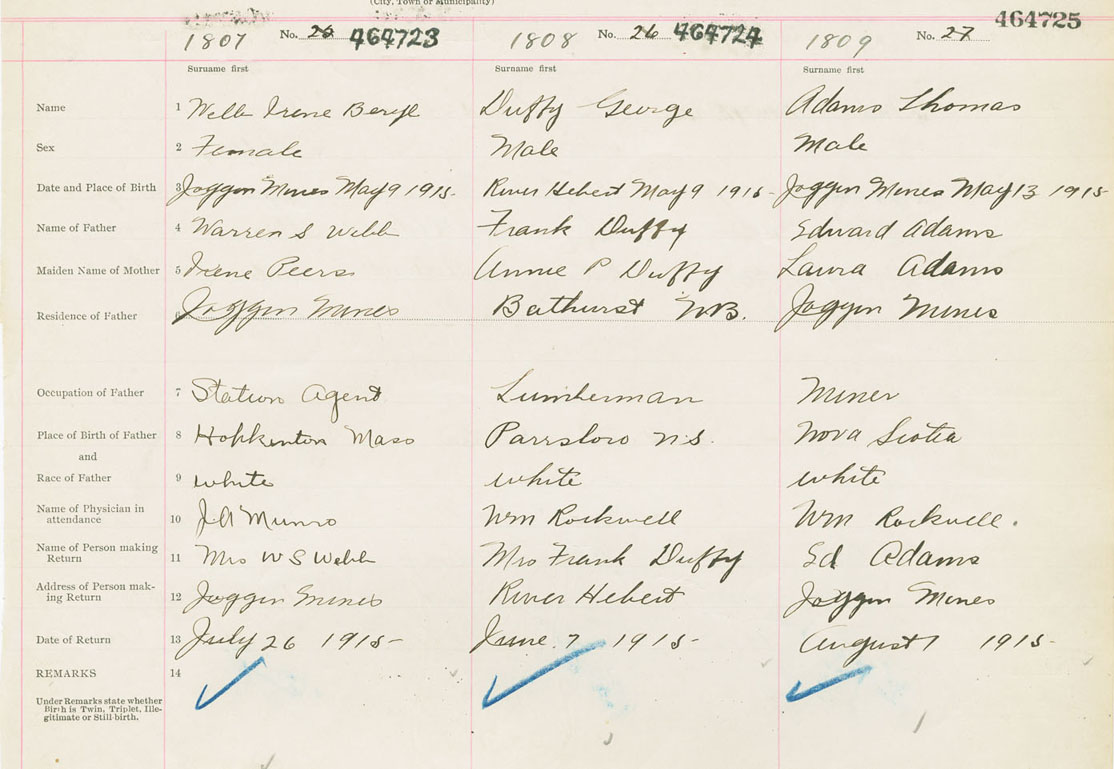 (City, Town or Municipality)
464725
1807 No. 25 464723 1808 No. 26 464724 1809 No. 27
Surname first Surname first Surname first
Name 1 Webb Irene Beryl Duffy George Adams Thomas
Sex 2 Female Male Male
Date and Place of Birth 3 Joggin Mines May 9 1915 River Hebert May 9 1915 Joggin Mines May 13 1915
Name of Father 4 Warren S Webb Frank Duffy Edward Adams
Maiden Name of Mother 5 Irene Peers Annie P Duffy Laura Adams
Residence of Father 6 Joggin Mines Bathurst N.B. Joggin Mines
Occupation of Father 7 Station Agent Lumberman Miner
Place of Birth of Father 8 Hopkenton Mass Parrsboro N.S. Nova Scotia
and
Race of Father 9 white white white
Name of Physician in
attendance 10 J A Munro Wm Rockwell Wm Rockwell.
Name of Person making
Return 11 Mrs W S Webb Mrs Frank Duffy Ed Adams
Address of Person mak-
ing Return 12 Joggin Mines River Hebert Joggin Mines
Date of Return 13 July 26 1915 June 7 1915 August 1 1915
REMARKS 14
Under Remarks state whether
Birth is Twin, Triplet, Ille-
gitimate or Still-birth.